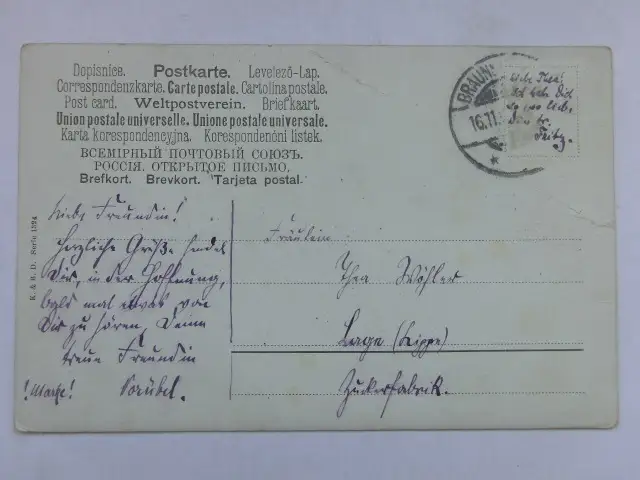 Dopisnice. Postkarte. Levelező-Lap.
Correspondenzkarte. Carte postale. Cartolina postale.
Post card. Weltpostverein. Briefkaart.
Union postale universelle. Unione postale universale.
Karta korespondencyjna. Korespondenční listek.
ВСЕМІРНЫЙ ПОЧТОВЫЙ СОЮЗЪ.
РОССІЯ. ОТКРЫТОЕ ПИСЬМО.
Brefkort. Brevkort. Tarjeta postal.
BRAUN
16.11.
Liebe Thea!
Ich habe Dich
so lieb.
Dein
Fritz.
K. & B. D. Serie 1124
Liebe Freundin!
Herzliche Grüße sendet
Dir, in der Hoffnung,
bald mal etwas von
Dir zu hören, Deine
treue Freundin
!Marke!
Fräulein
Thea Wöhler
Lage (Lippe)
Zuckerfabrik.